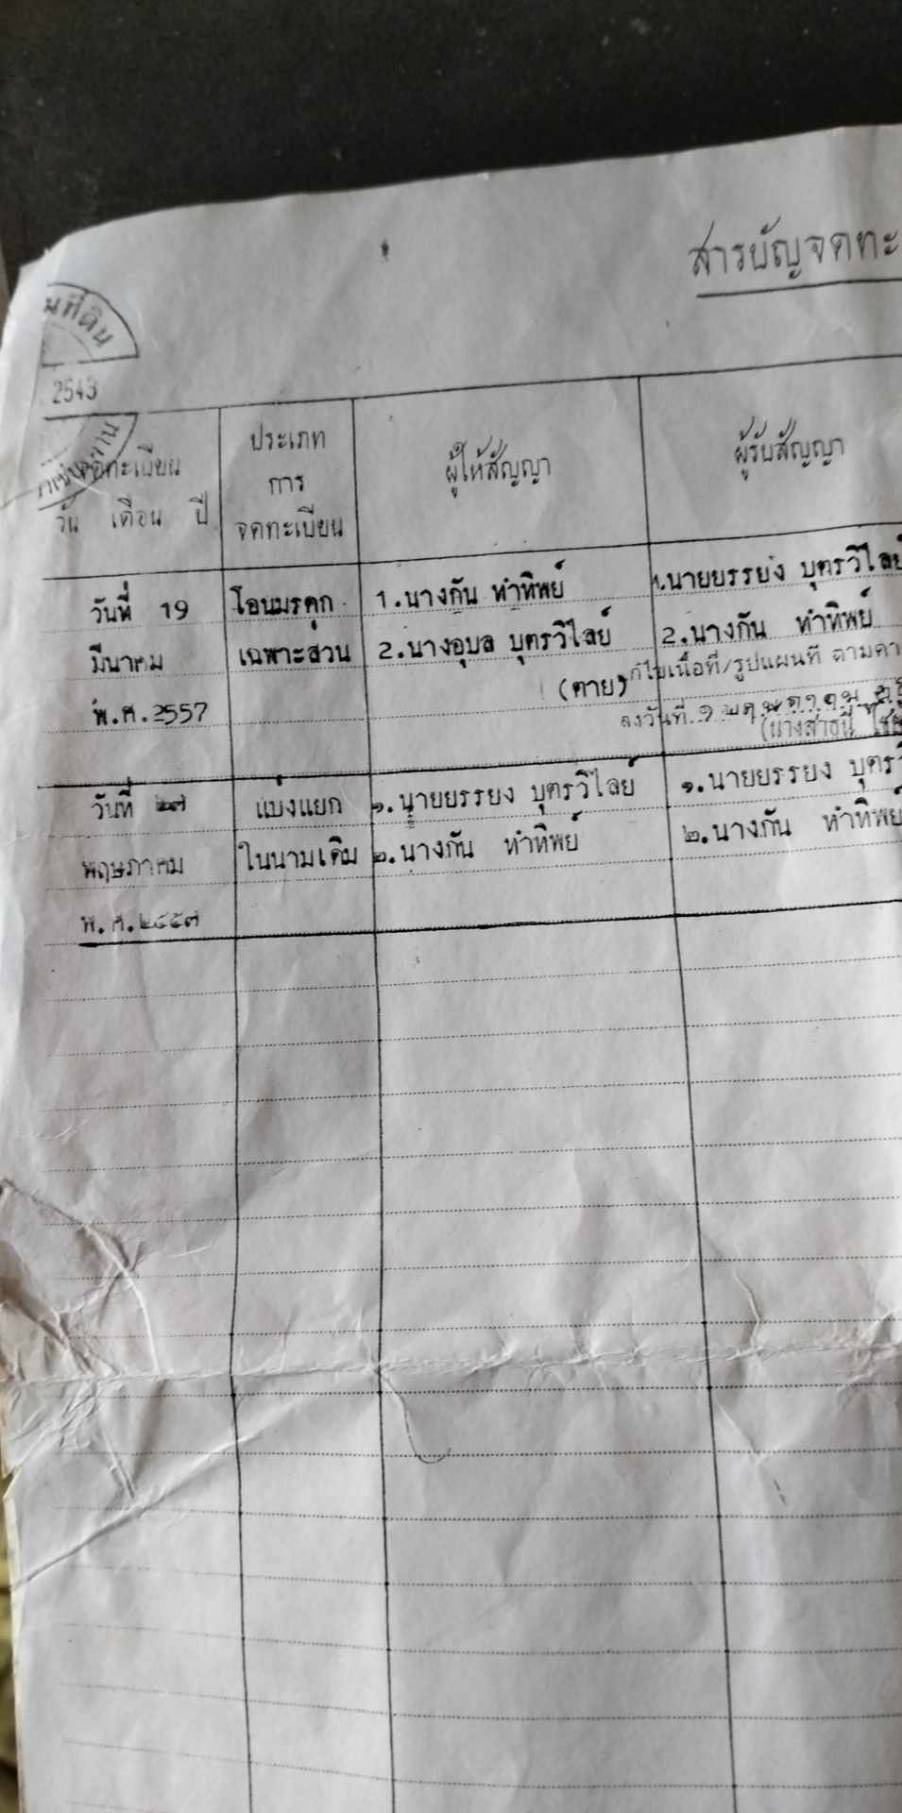 สารบัญจดทะ
นที่ดิน
2543
จดทะเบียน
วัน เดือน ปี
ประเภท
การ
จดทะเบียน
ผู้ให้สัญญา
ผู้รับสัญญา
วันที่ 19
มีนาคม
พ.ศ.2557
โอนมรดก
เฉพาะส่วน
1.นางกัน ทำทิพย์
2.นางอุบล บุตรวิไลย์
(ตาย)
1.นายยรรยง บุตรวิไลย์
2.นางกัน ทำทิพย์
เนื้อที่/รูปแผนที่ ตามคา
ลงวันที่
วันที่ ๒๗
พฤษภาคม
พ.ศ.๒๕๕๗
แบ่งแยก
ในนามเดิม
๑.นายยรรยง บุตรวิไลย์
๒.นางกัน ทำทิพย์
๑.นายยรรยง บุตรวิ
๒.นางกัน ทำทิพย์